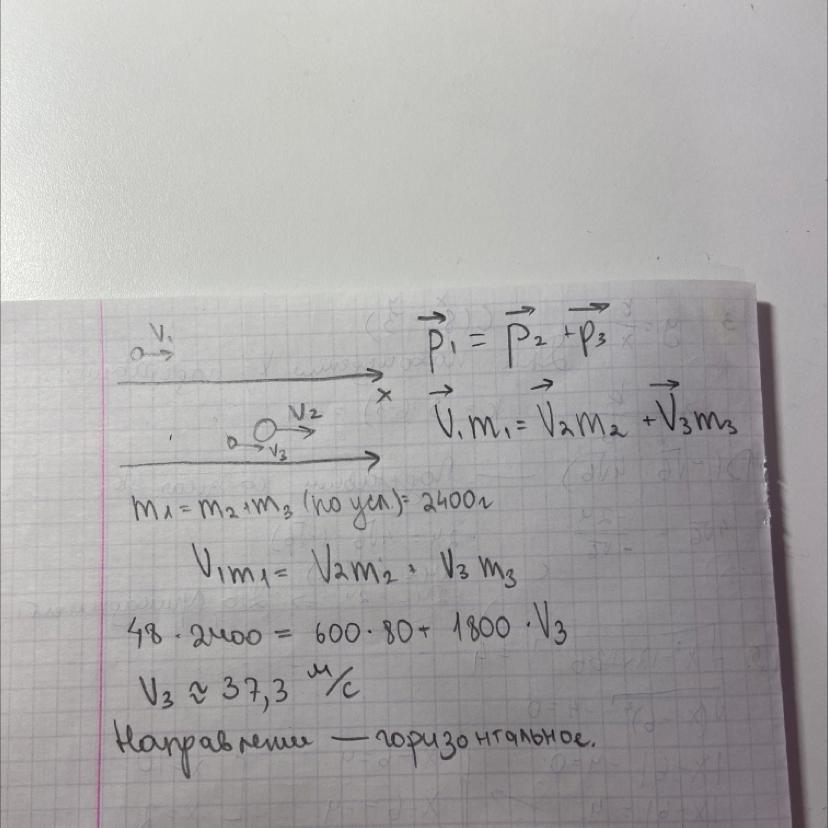 V₁
x
V₂
V₃
p⃗₁ = p⃗₂ + p⃗₃
V⃗₁m₁ = V⃗₂m₂ + V⃗₃m₃
m₁ = m₂ + m₃ (по усл.) = 2400г
V₁m₁ = V₂m₂ + V₃m₃
48 · 2400 = 600 · 80 + 1800 · V₃
V₃ ≈ 37,3 м/с
Направление — горизонтальное.